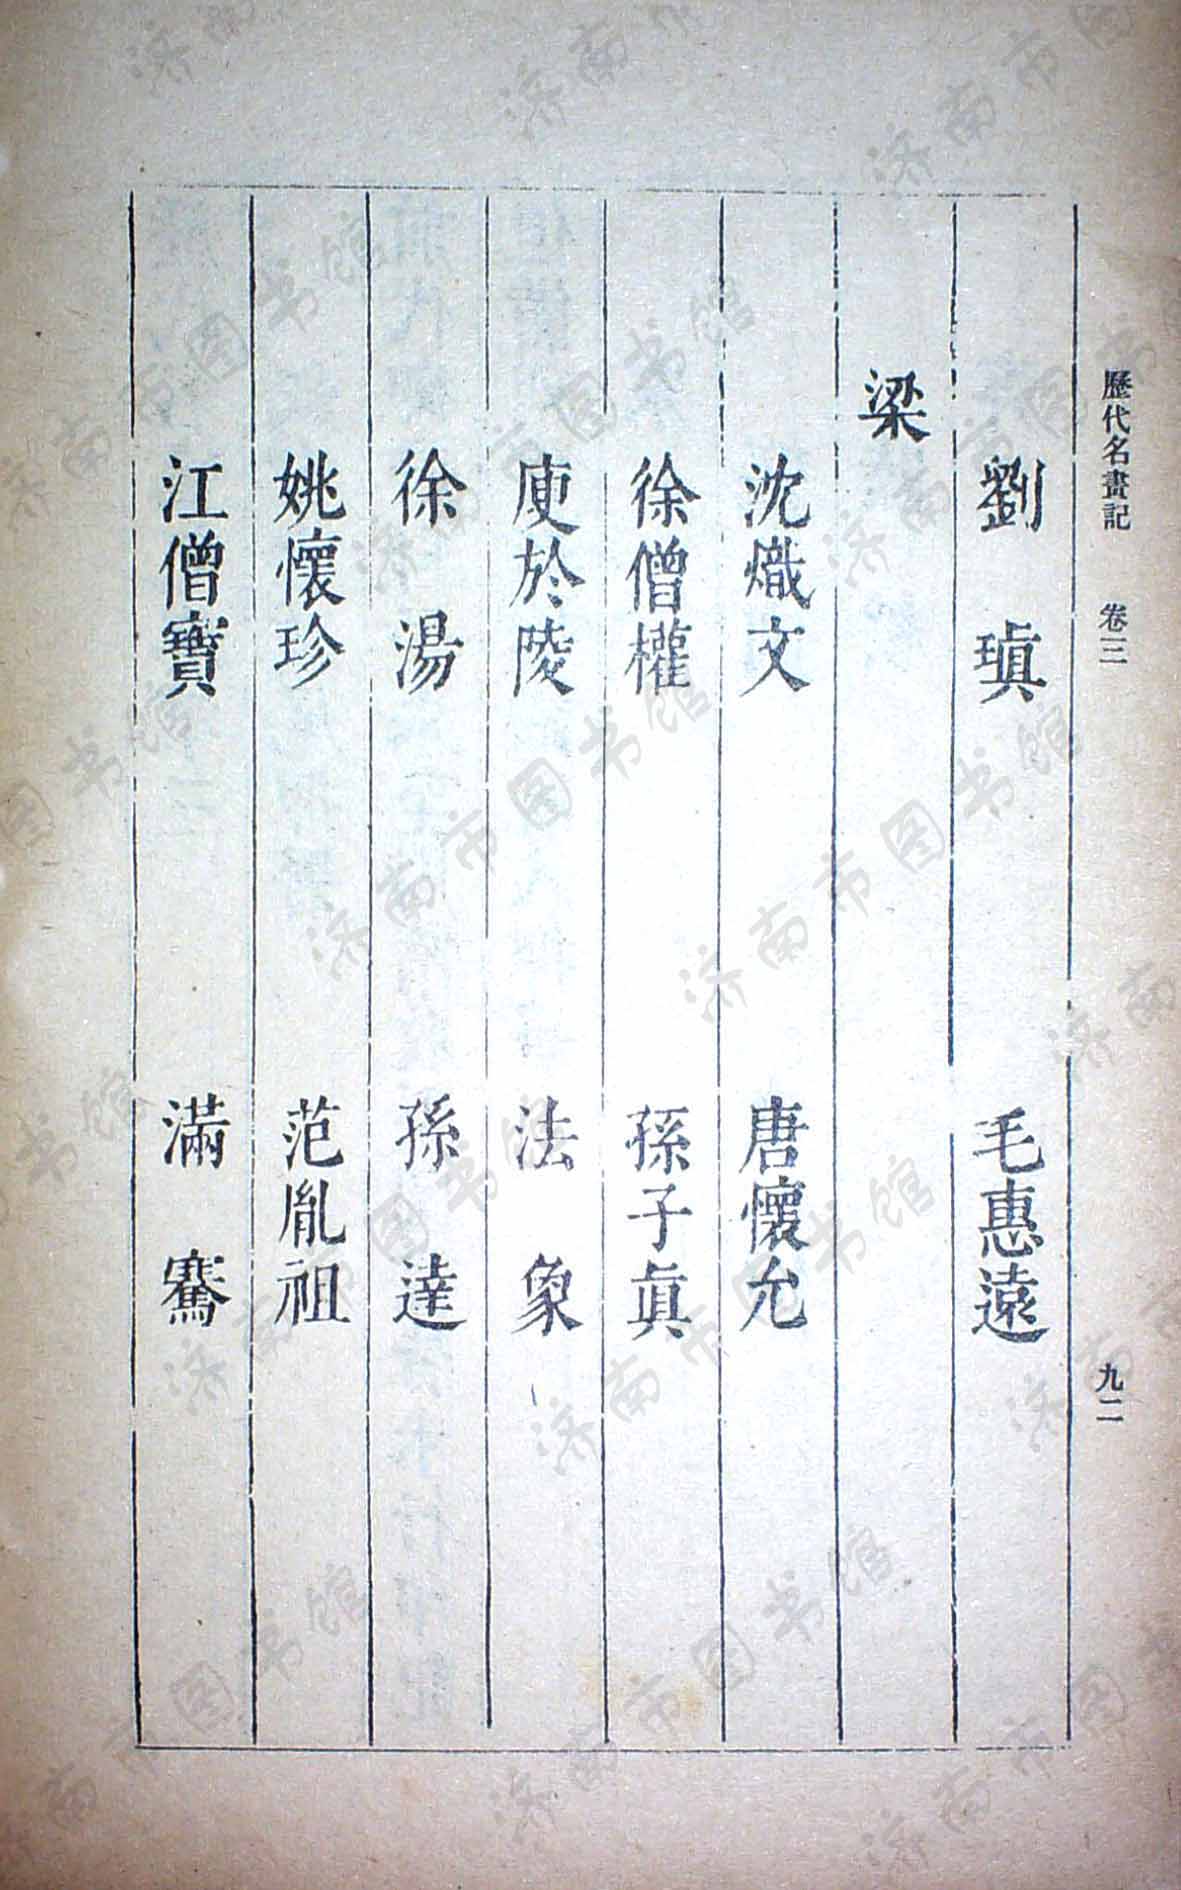 歷代名畫記 卷三 九二
劉瑱 毛惠遠
梁
沈熾文 唐懷允
徐僧權 孫子眞
庾於陵 法象
徐湯 孫達
姚懷珍 范胤祖
江僧寶 滿騫
济南市图书馆